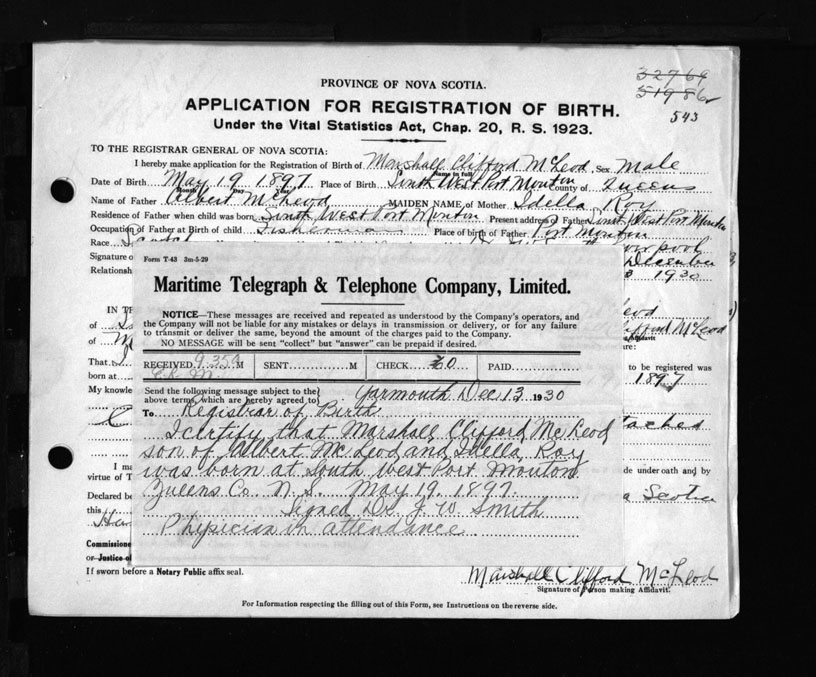 32769
51986
543
PROVINCE OF NOVA SCOTIA.
APPLICATION FOR REGISTRATION OF BIRTH.
Under the Vital Statistics Act, Chap. 20, R. S. 1923.
TO THE REGISTRAR GENERAL OF NOVA SCOTIA:
I hereby make application for the Registration of Birth of Marshall Clifford McLeod Sex Male
Name in full
Date of Birth May 19 1897 Place of Birth South West Port Mouton County of Queens
Month Day Year
Name of Father Albert McLeod MAIDEN NAME of Mother Idella Roy
Residence of Father when child was born South West Port Mouton Present address of Father South West Port Mouton
Occupation of Father at Birth of child Fisherman Place of birth of Father Port Mouton
Race
Signature o December
Relationsh 1930
Form T-43 3m-5-29
Maritime Telegraph & Telephone Company, Limited.
NOTICE—These messages are received and repeated as understood by the Company's operators, and
the Company will not be liable for any mistakes or delays in transmission or delivery, or for any failure
to transmit or deliver the same, beyond the amount of the charges paid to the Company.
NO MESSAGE will be sent "collect" but "answer" can be prepaid if desired.
RECEIVED 9.35A M SENT M CHECK PAID
Send the following message subject to the
above terms, which are hereby agreed to
Yarmouth Dec 13 1930
To Registrar of Birth
I certify that Marshall Clifford McLeod
son of Albert McLeod and Idella Roy
was born at South West Port Mouton
Queens Co. N.S. May 19. 1897.
Signed Dr. J. W. Smith
Physician in attendance
IN TH
of
of
That
born at
My knowle
I ma
virtue of T
Declared be
this
Commissione
or Justice of
eod
lifford McLeod
Affidavit
re:
to be registered was
1897
tached
de under oath and by
a Scotia
If sworn before a Notary Public affix seal.
Marshall Clifford McLeod
Signature of Person making Affidavit.
For Information respecting the filling out of this Form, see Instructions on the reverse side.